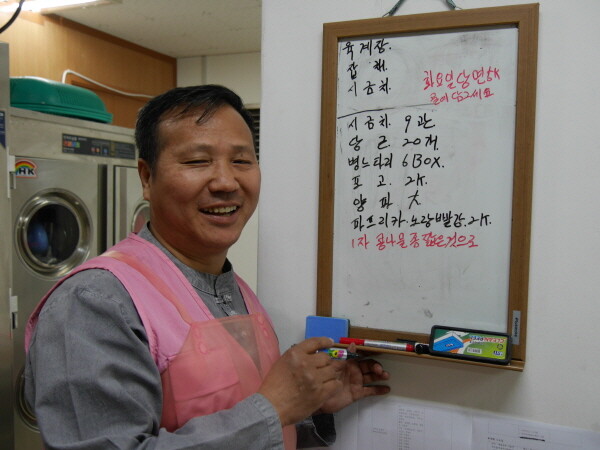 육계장.
잡채.
시금치.
화요일 당면 5K
물에 담그세요
시금치. 9관
당근. 20개.
병느타리 6BOX.
표고. 2K.
양파 大
파프리카. 노랑 빨강. 2K.
1자 콩나물 좀 짧은것으로
HK